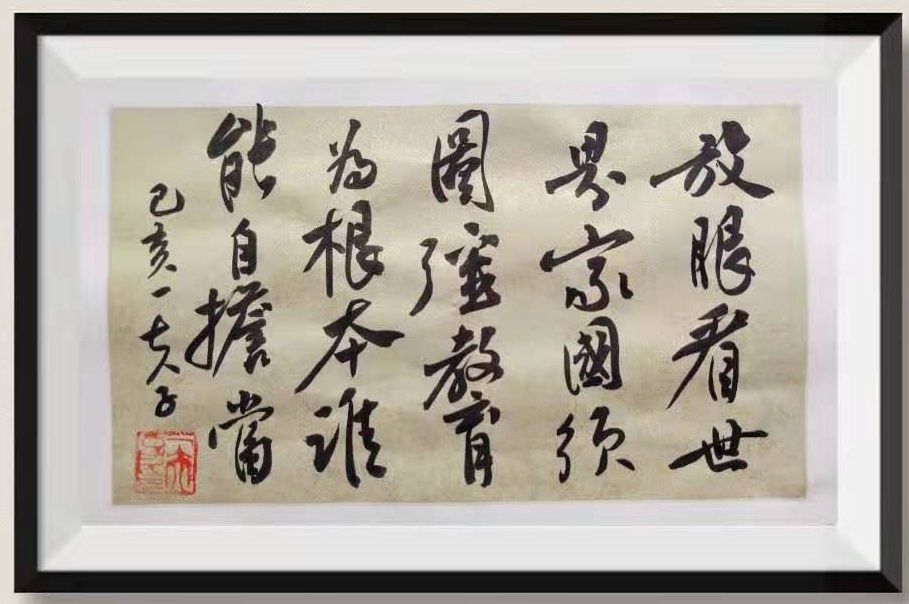 放眼看世
界家國須
圖彊教育
為根本誰
能自擔當
己亥一夫子